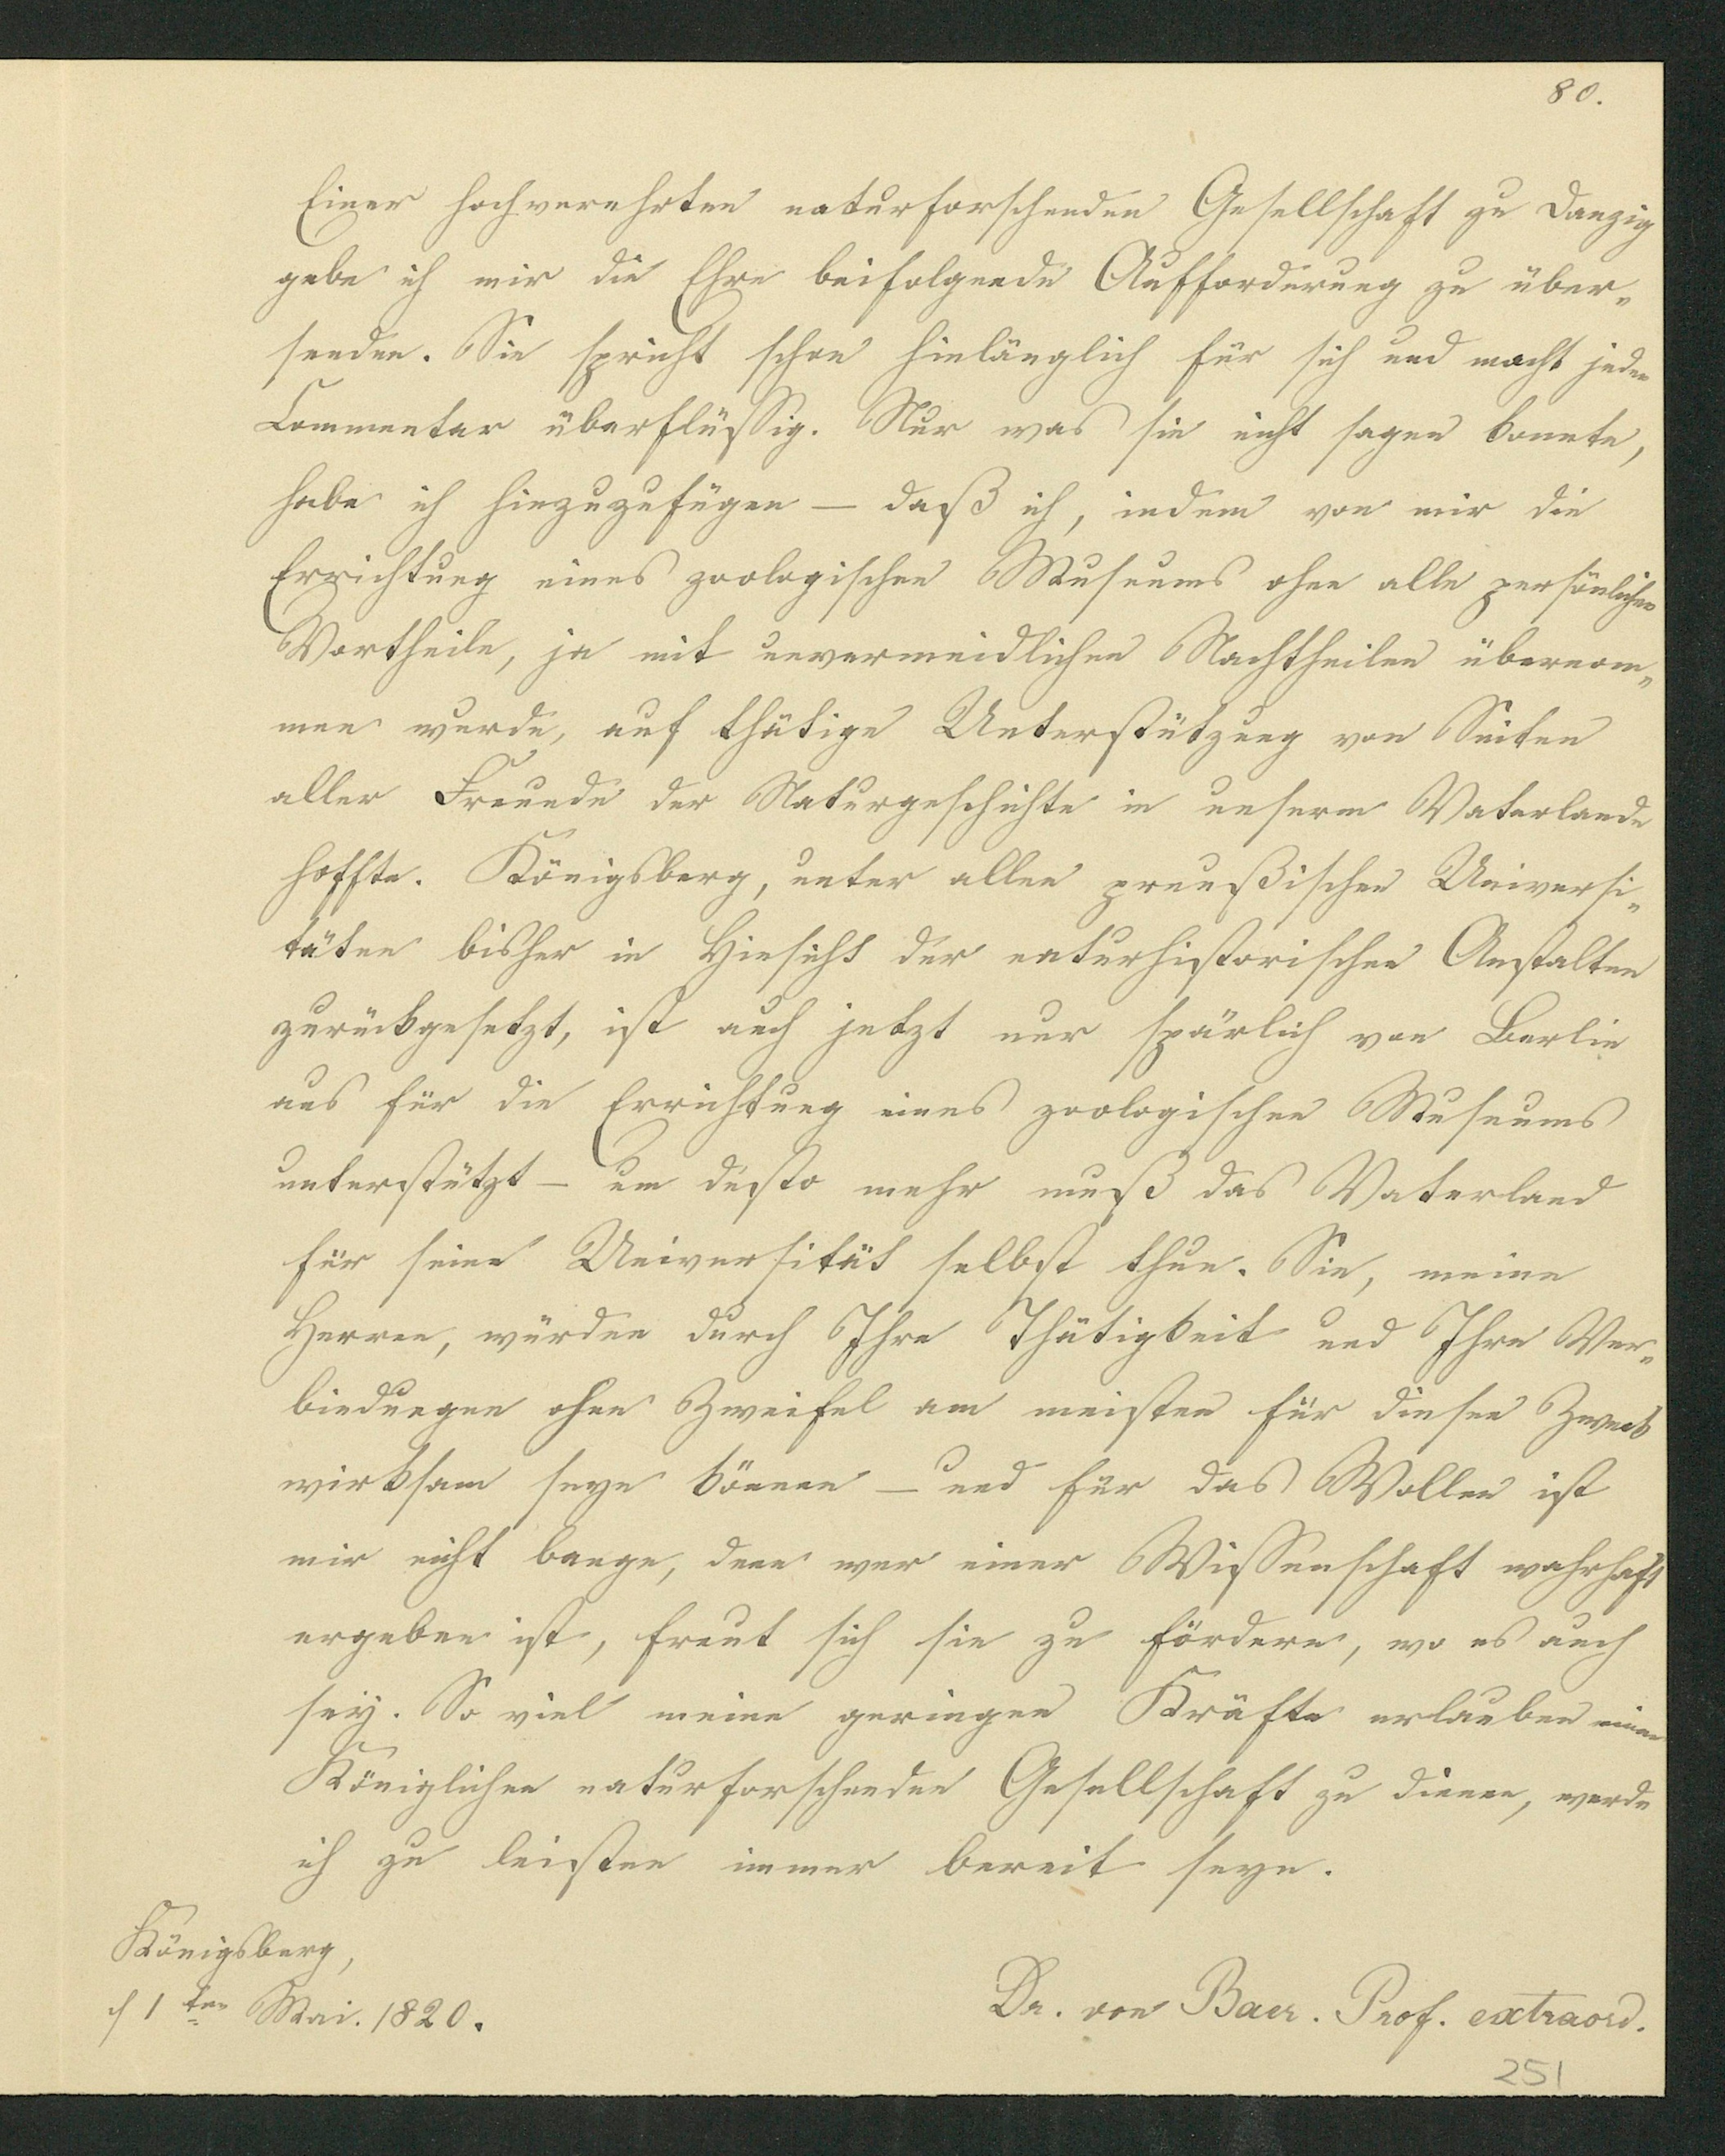 80.
Einer hochverehrten naturforschenden Gesellschaft zu Danzig
gebe ich mir die Ehre beifolgende Aufforderung zu über-
senden. Sie spricht schon hinlänglich für sich und macht jeden
Commentar überflüssig. Nur was sie nicht sagen konnte,
habe ich hinzuzufügen — daß ich, indem von mir die
Errichtung eines zoologischen Museums ohne alle persönlichen
Vortheile, ja mit unvermeidlichen Nachtheilen übernom-
men wurde, auf thätige Unterstützung von Seiten
aller Freunde der Naturgeschichte in unserm Vaterlande
hoffte. Königsberg, unter allen preußischen Universi-
täten bisher in Hinsicht der naturhistorischen Anstalten
zurückgesetzt, ist auch jetzt nur spärlich von Berlin
aus für die Errichtung eines zoologischen Museums
unterstützt — um desto mehr muß das Vaterland
für seine Universität selbst thun. Sie, meine
Herren, würden durch Ihre Thätigkeit und Ihre Ver-
bindungen ohne Zweifel am meisten für diesen Zweck
wirksam seyn können — und für das Wollen ist
mir nicht bange, denn wer einer Wissenschaft wahrhaft
ergeben ist, freut sich sie zu fördern, wo es auch
sey. So viel meine geringen Kräfte erlauben einer
Königlichen naturforschenden Gesellschaft zu dienen, werde
ich zu leisten immer bereit seyn.
Königsberg,
d 1ten Mai. 1820.
Dr. von Baer. Prof. extraord.
251